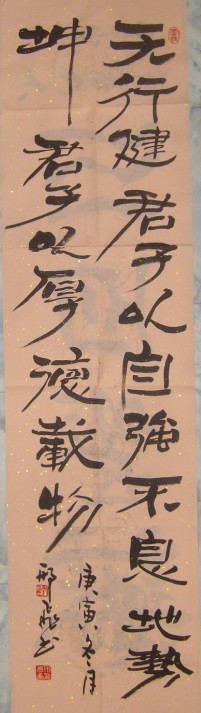 天行健君子以自強不息地勢
坤君子以厚德載物
庚寅冬月
邢飛书